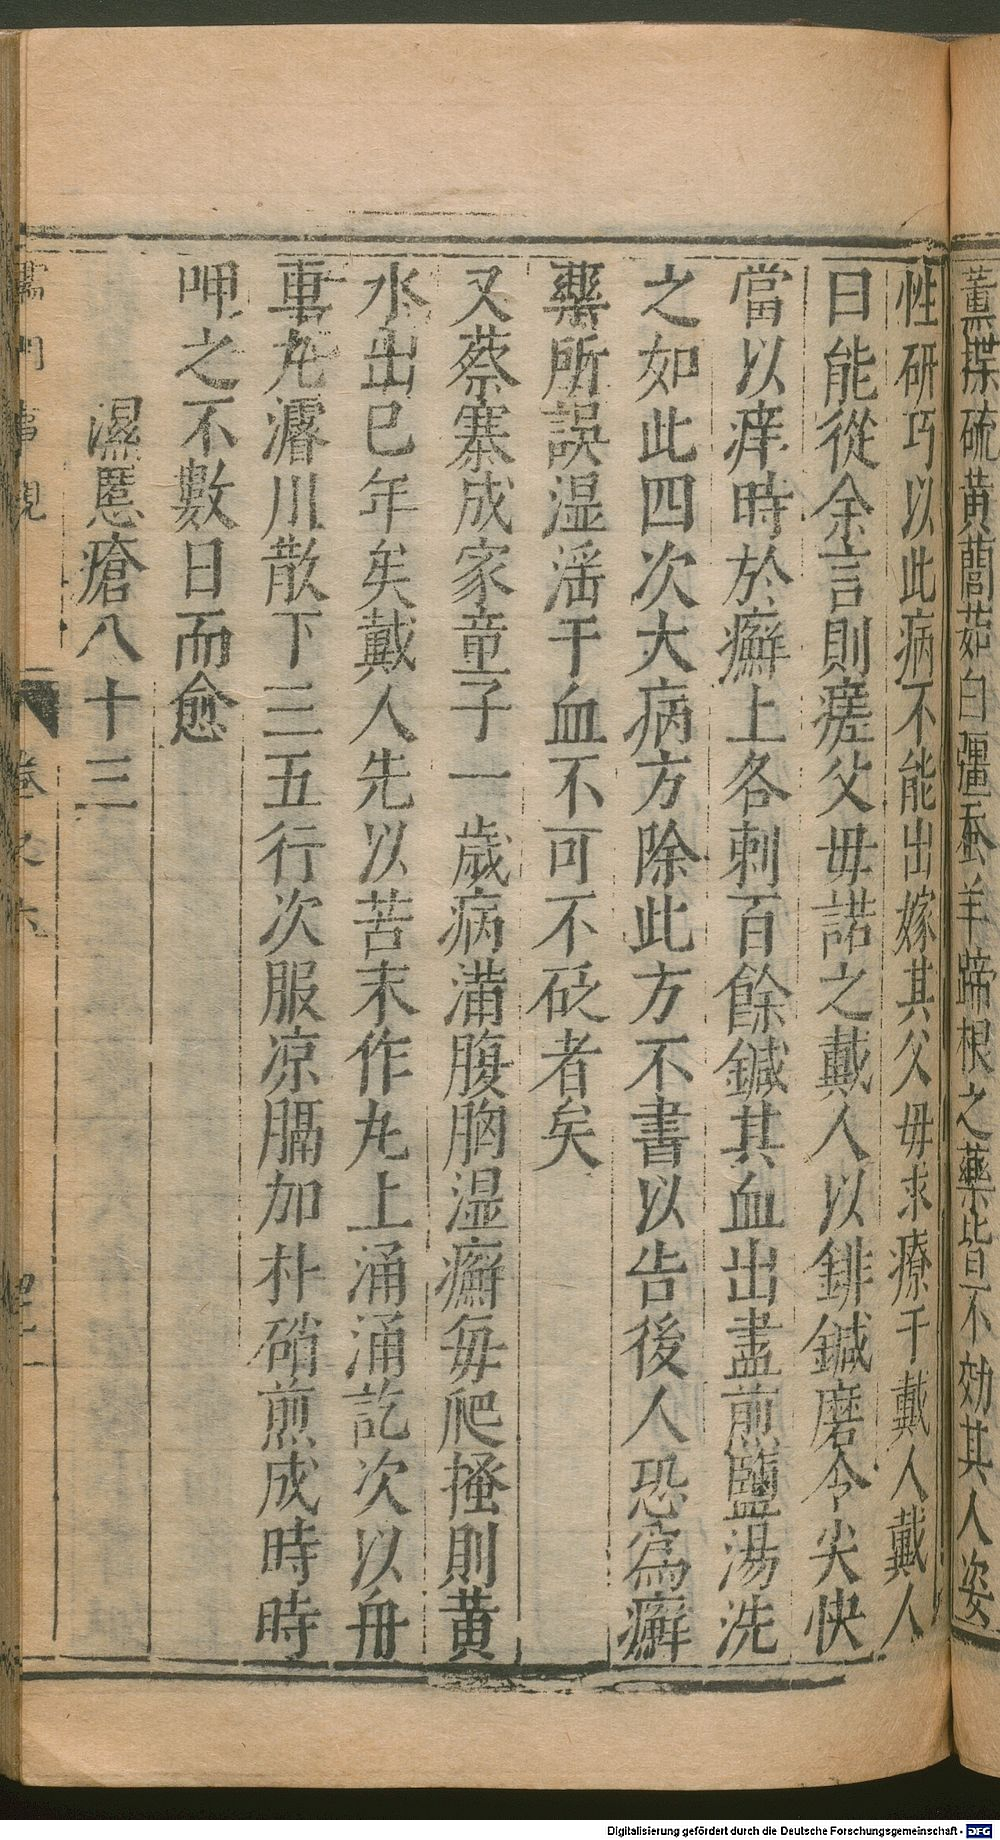 薰揲硫黃䕡茹白殭蚕羊蹄根之藥皆不効其人姿
性研巧以此病不能出嫁其父毋求療于戴人戴人
曰能從余言則瘥父毋諾之戴人以鋍鍼磨令尖快
當以痒時於癬上各刺百餘鍼其血出盡煎鹽湯洗
之如此四次大病方除此方不書以告後人恐爲癬
藥所誤湿滛于血不可不砭者矣
又蔡寨成家童子一歲病滿腹胸湿癬每爬搔則黄
水出已年矣戴人先以苦末作丸上涌涌訖次以舟
車丸濬川散下三五行次服凉膈加朴硝煎成時時
呷之不數日而愈
濕䘌瘡八十三
儒門事親 卷之六
Digitalisierung gefördert durch die Deutsche Forschungsgemeinschaft - DFG